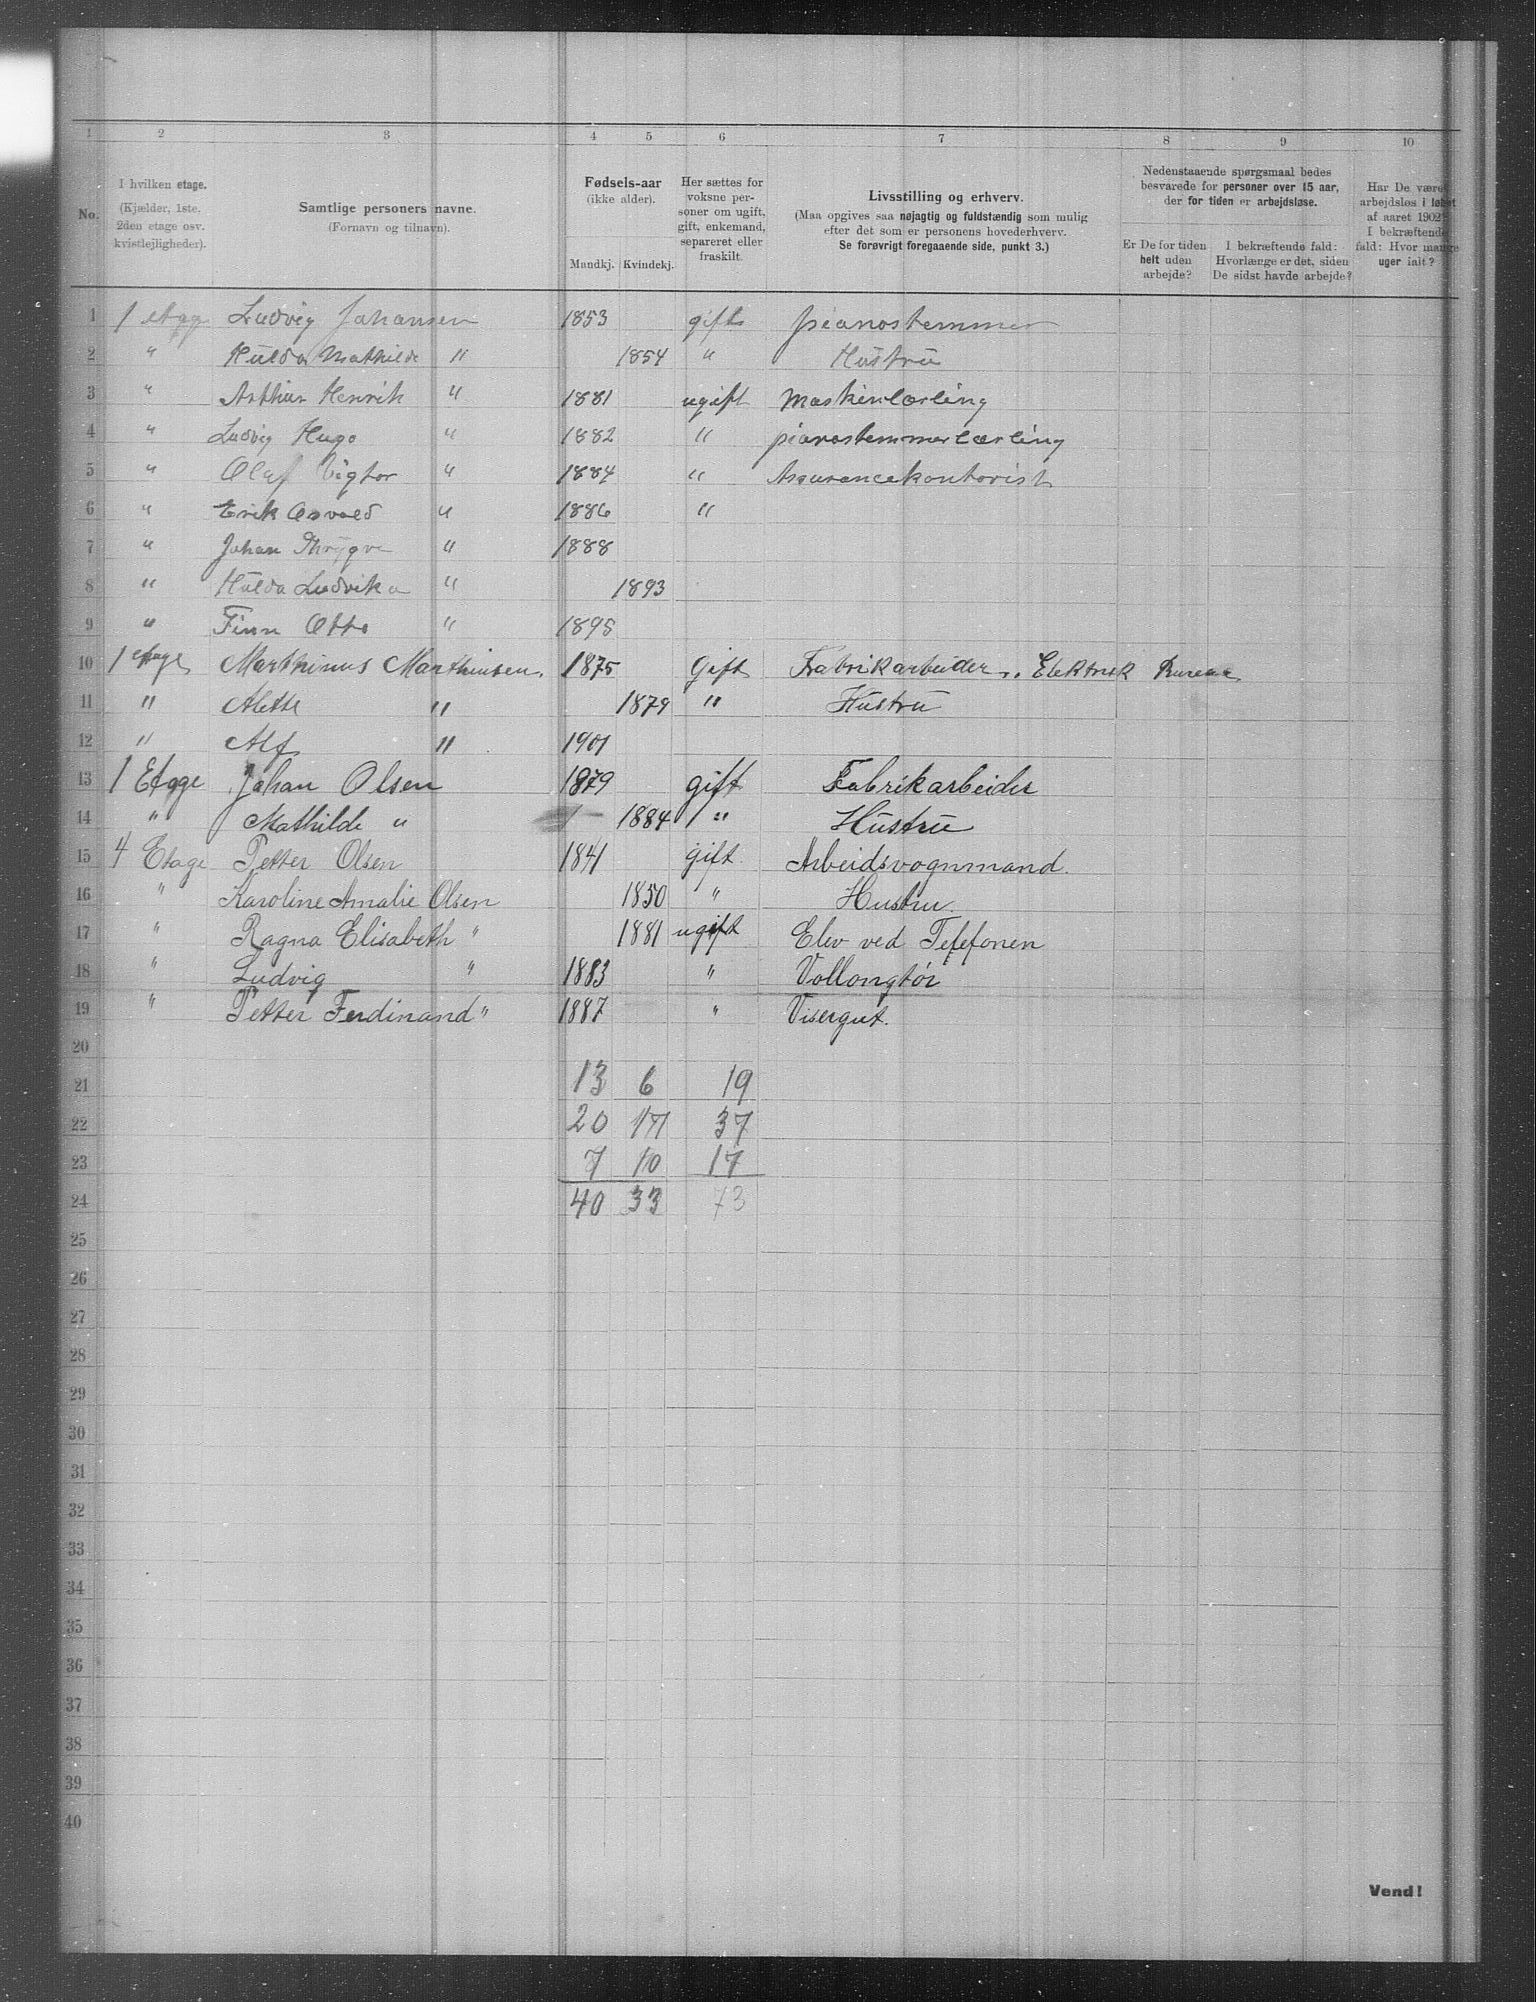 1 2 3 4 5 6 7 8 9 10
No.
I hvilken etage.
(Kjælder, 1ste.
2den etage osv.
kvistlejligheder).
Samtlige personers navne.
(Fornavn og tilnavn).
Fødsels-aar
(ikke alder).
Mandkj. Kvindekj.
Her sættes for
voksne per-
soner om ugift,
gift, enkemand,
separeret eller
fraskilt.
Livsstilling og erhverv.
(Maa opgives saa nøjagtig og fuldstændig som mulig
efter det som er personens hovederhverv.
Se forøvrigt foregaaende side, punkt 3.)
Nedenstaaende spørgsmaal bedes
besvarede for personer over 15 aar,
der for tiden er arbejdsløse.
Er De for tiden
helt uden
arbejde?
I bekræftende fald:
Hvorlænge er det, siden
De sidst havde arbejde?
Har De være
arbejdsløs i løbet
af aaret 1902?
I bekræftende
fald: Hvor mange
uger ialt?
1 1 etag Ludvig Johansen 1853 gift pianostemmer
2 " Hulda Mathilde " 1854 " Hustru
3 " Arthur Henrik " 1881 ugift Maskinlærling
4 " Ludvig Hugo " 1882 " pianostemmerlærling
5 " Olaf Vigtor " 1884 " Assurancekontorist
6 " Erik Osvald " 1886 "
7 " Johan Thrygve " 1888
8 " Hulda Ludvika " 1893
9 " Finn Otto " 1895
10 1 etage Marthinus Marthinsen. 1875 Gift Fabrikarbeider v. Elektrisk Bureau
11 " Alette " 1879 " Hustru
12 " Alf " 1901
13 1 Etage Johan Olsen 1879 gift Fabrikarbeider
14 " Mathilde " 1884 " Hustru
15 4 Etage Petter Olsen 1841 gift Arbeidsvognmand.
16 " Karoline Amalie Olsen 1850 " Hustru.
17 " Ragna Elisabeth " 1881 ugift Elev ved Telefonen
18 " Ludvig " 1883 " Vollongtør
19 " Petter Ferdinand " 1887 " Visergut.
20
21 13 6 19
22 20 17 37
23 7 10 17
24 40 33 73
25
26
27
28
29
30
31
32
33
34
35
36
37
38
39
40
Vend!